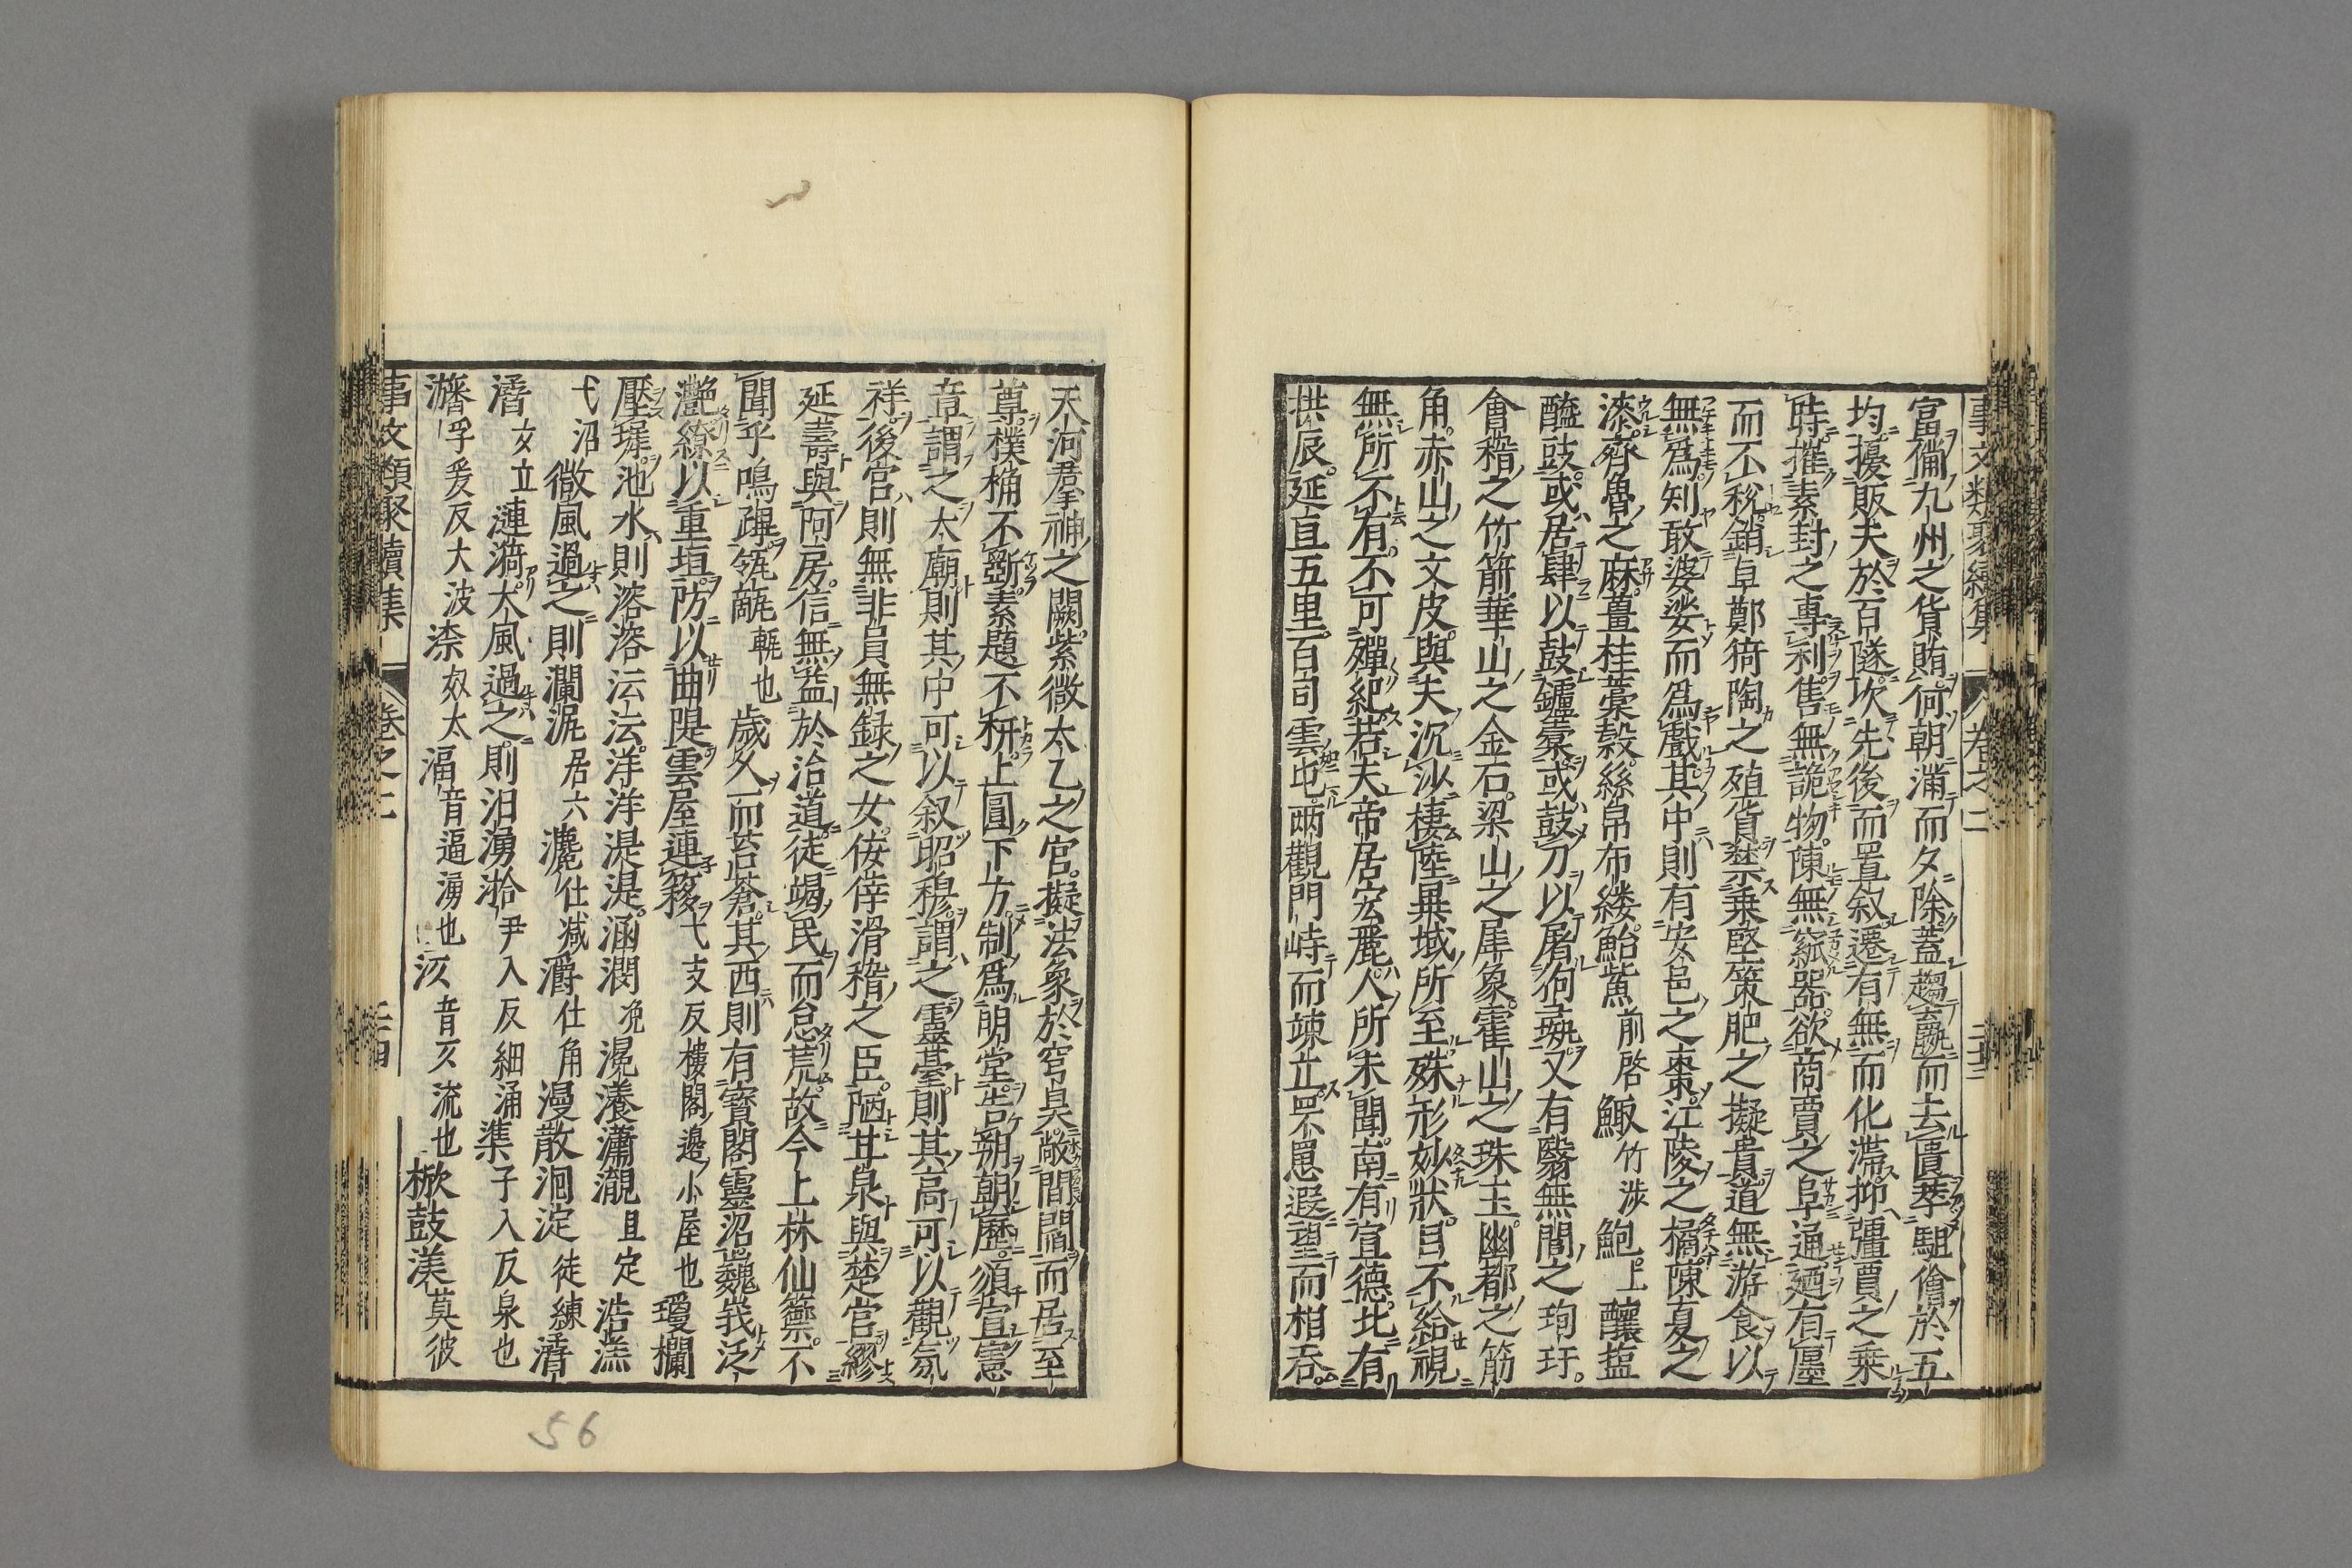 富備九州之貨賄何朝滿而夕除蓋趨贏而去匱萃駔儈於五
均擾販夫於百隧次先後而置叙遷有無而化滯抑彊賈之乗
時摧素封之專利售無詭物陳無窳器欲商賈之阜通廼有廛
而不稅銷卓鄭猗陶之殖貨禁乗堅策肥之擬貴道無游食以
無爲矧敢婆娑而爲戲其中則有安邑之棗江陵之橘陳夏之
漆齊魯之麻薑桂藁穀絲帛布縷鮐鮆前啓鯫竹涉鮑上釀塩
醯豉或居肆以鼓鑪橐或鼓刀以屠狗彘又有醫無閭之珣玗
會稽之竹箭華山之金石梁山之犀象霍山之珠玉幽都之筋
角赤山之文皮與夫沉沙棲陸異域所至殊形妙狀目不給視
無所不有不可殫紀若夫帝居宏麗人所未聞南有宣德北有
拱辰延亘五里百司雲屯兩觀門峙而竦立罘罳遐望而相吞
天河羣神之闕紫微太乙之宮擬法象於穹昊敞閶闔而居至
尊樸桷不斲素題不枅上圓下方制爲明堂告朔朝歷須宣憲
章謂之太廟則其中可以叙昭穆謂之靈臺則其高可以觀氛
祥後宮則無非員無録之女佞倖滑稽之臣陋甘泉與楚宮繆
延壽與阿房信無益於治道徒竭民而怠荒故今上林仙籞不
聞乎鳴蹕瓴甋甎也歲久而苔蒼其西則有寳閣靈沼巍峩泛
灧繚以重垣防以曲隄雲屋連簃弋支反樓閣邊小屋也瓊欄
壓墀池水則溶溶沄沄洋洋湜湜涵潤滉瀁瀟灦且定浩溔
弋沼微風過之則瀾淈居六灇仕減灂仕角漫散洄淀徒練潸
㴔攵立漣漪大風過之則汨湧湁尹入反細涌潗子入反泉也
瀿孚爰反大波㴎奴太湢音逼湧也汳音亥流也㭰鼓渼莫彼
事文類聚續集　卷之二